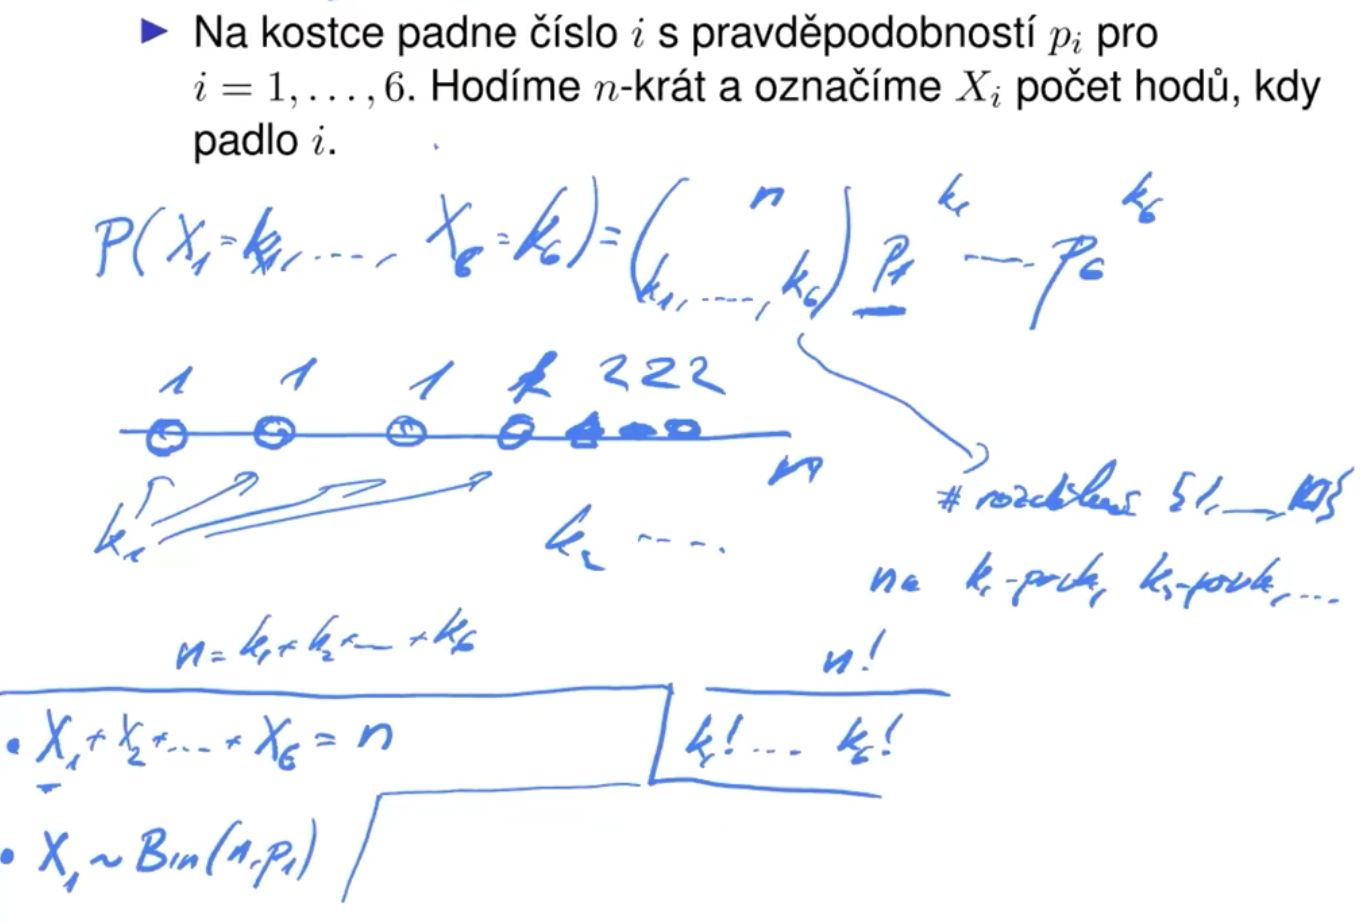 ▶ Na kostce padne číslo i s pravděpodobností pᵢ pro
i = 1, . . . , 6. Hodíme n-krát a označíme Xᵢ počet hodů, kdy
padlo i.
P(X₁=k₁, ...., X₆=k₆) = (n k₁, ...., k₆) p₁^k₁ ---- p₆^k₆
1 1 1 1 2 2 2
n
k₁ k₂ ....
# rozdělení {1, __, n}
na k₁-prvk, k₂-prvk, ...
n = k₁ + k₂ + __ + k₆
n!
k₁! ... k₆!
• X₁ + X₂ + .... + X₆ = n
• X₁ ~ Bin(n, p₁)